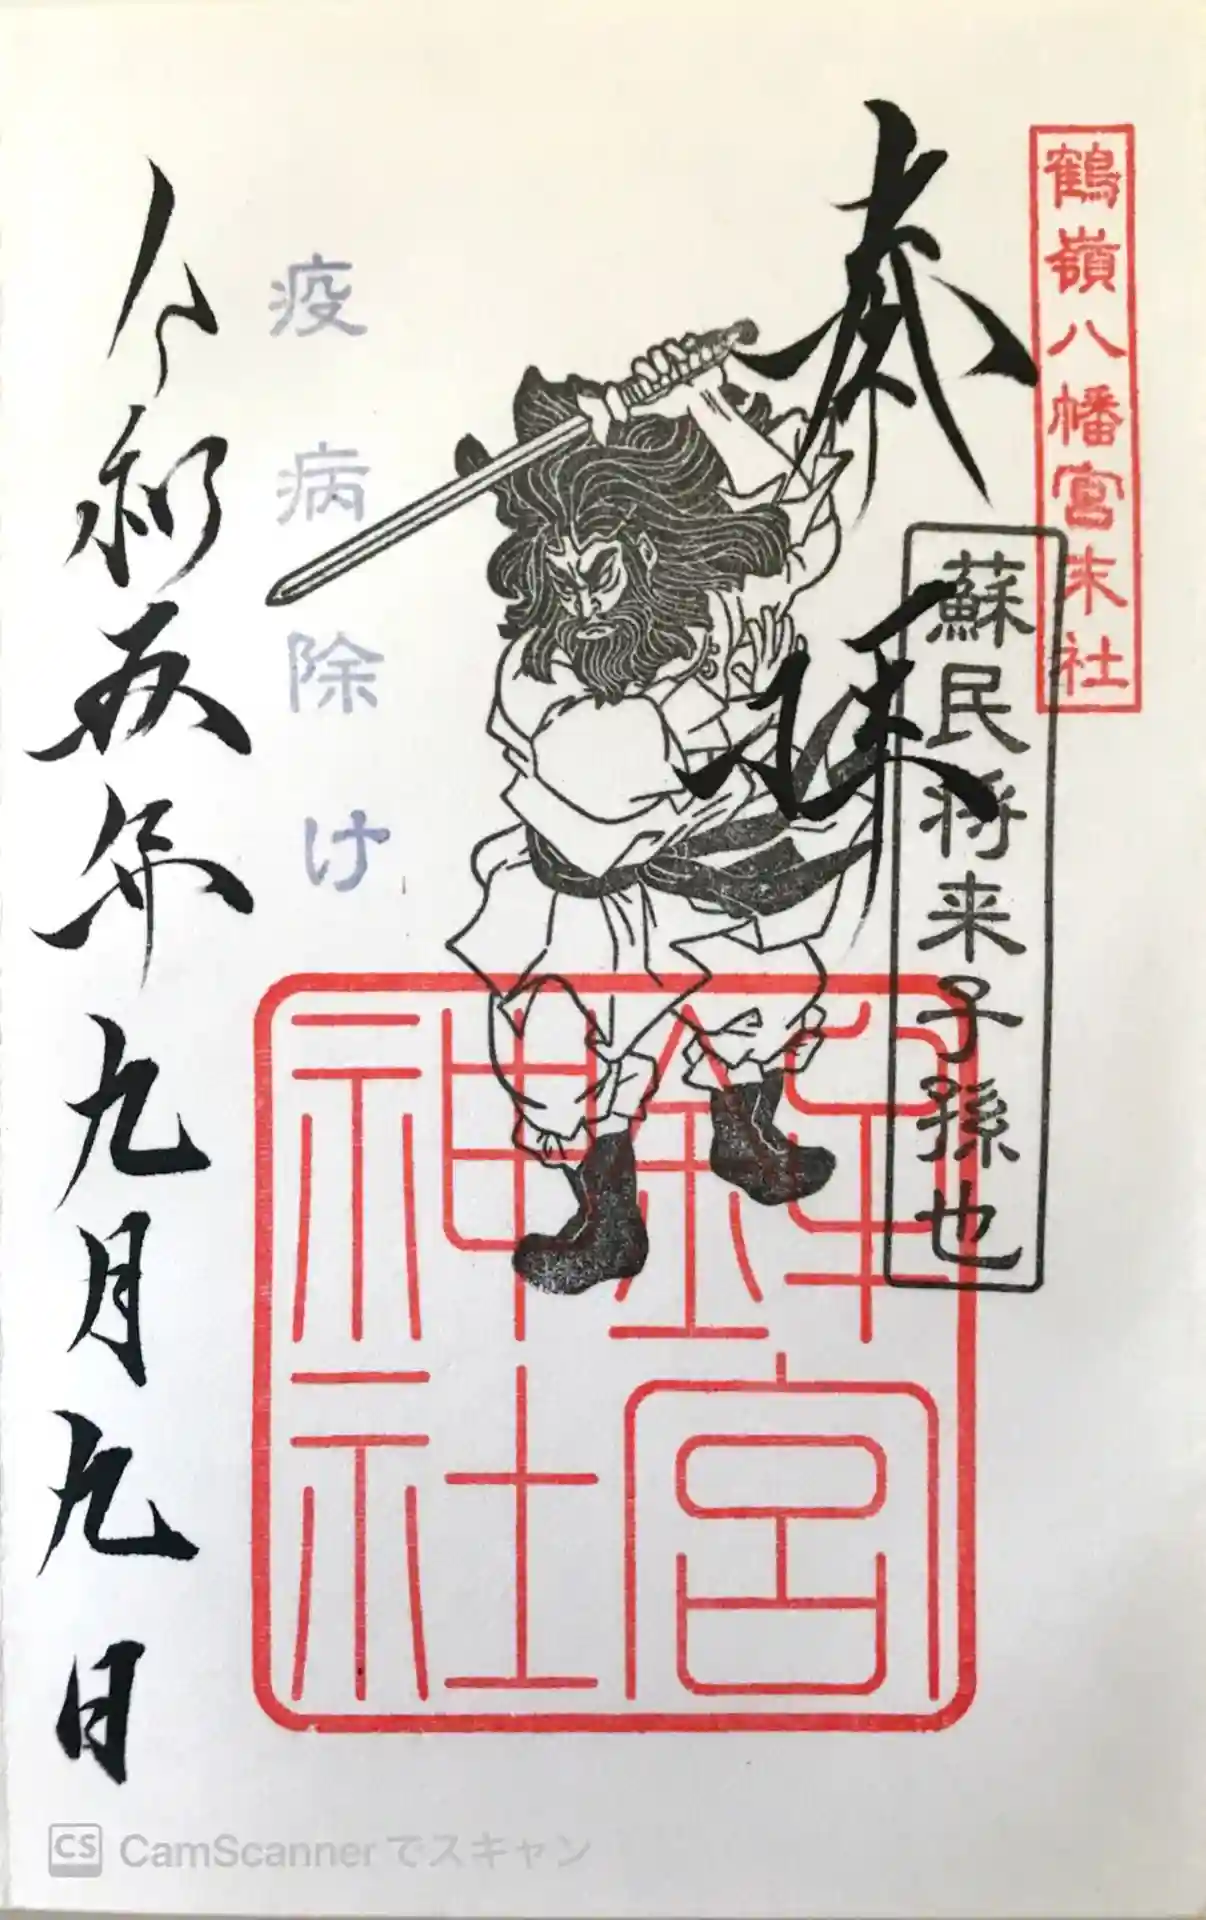 鶴嶺八幡宮末社
奉拝
蘇民将来子孫也
鉾宮神社
疫病除け
令和五年九月九日
CS CamScannerでスキャン